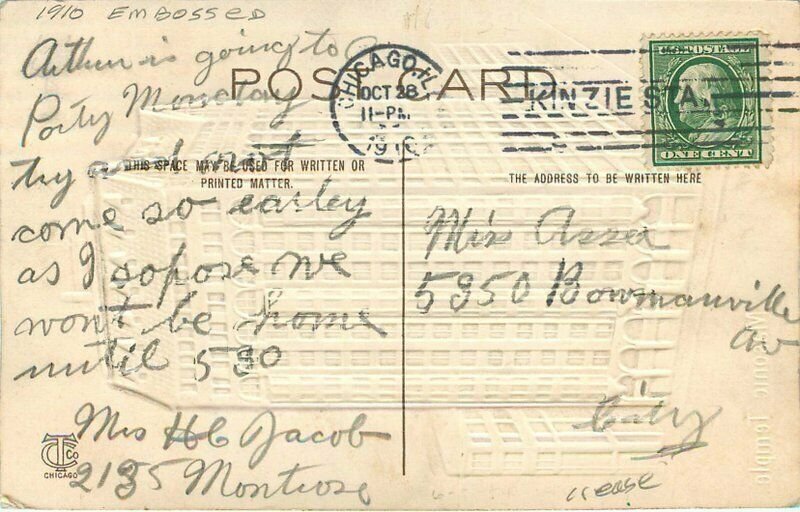 1910 EMBOSSED
Arthur is going to a
Party Monday
try and not
come so earley
as I sopose we
won't be home
until 530
Mrs H C Jacob
2135 Montrose
POST CARD
THIS SPACE MAY BE USED FOR WRITTEN OR
PRINTED MATTER.
TCo
CHICAGO
CHICAGO, ILL
OCT 28
11-PM
1910
KINZIE STA.
U.S. POSTAGE
ONE CENT
THE ADDRESS TO BE WRITTEN HERE
Miss
5350 Bowmanville
av
City
crease
Masonic Temple